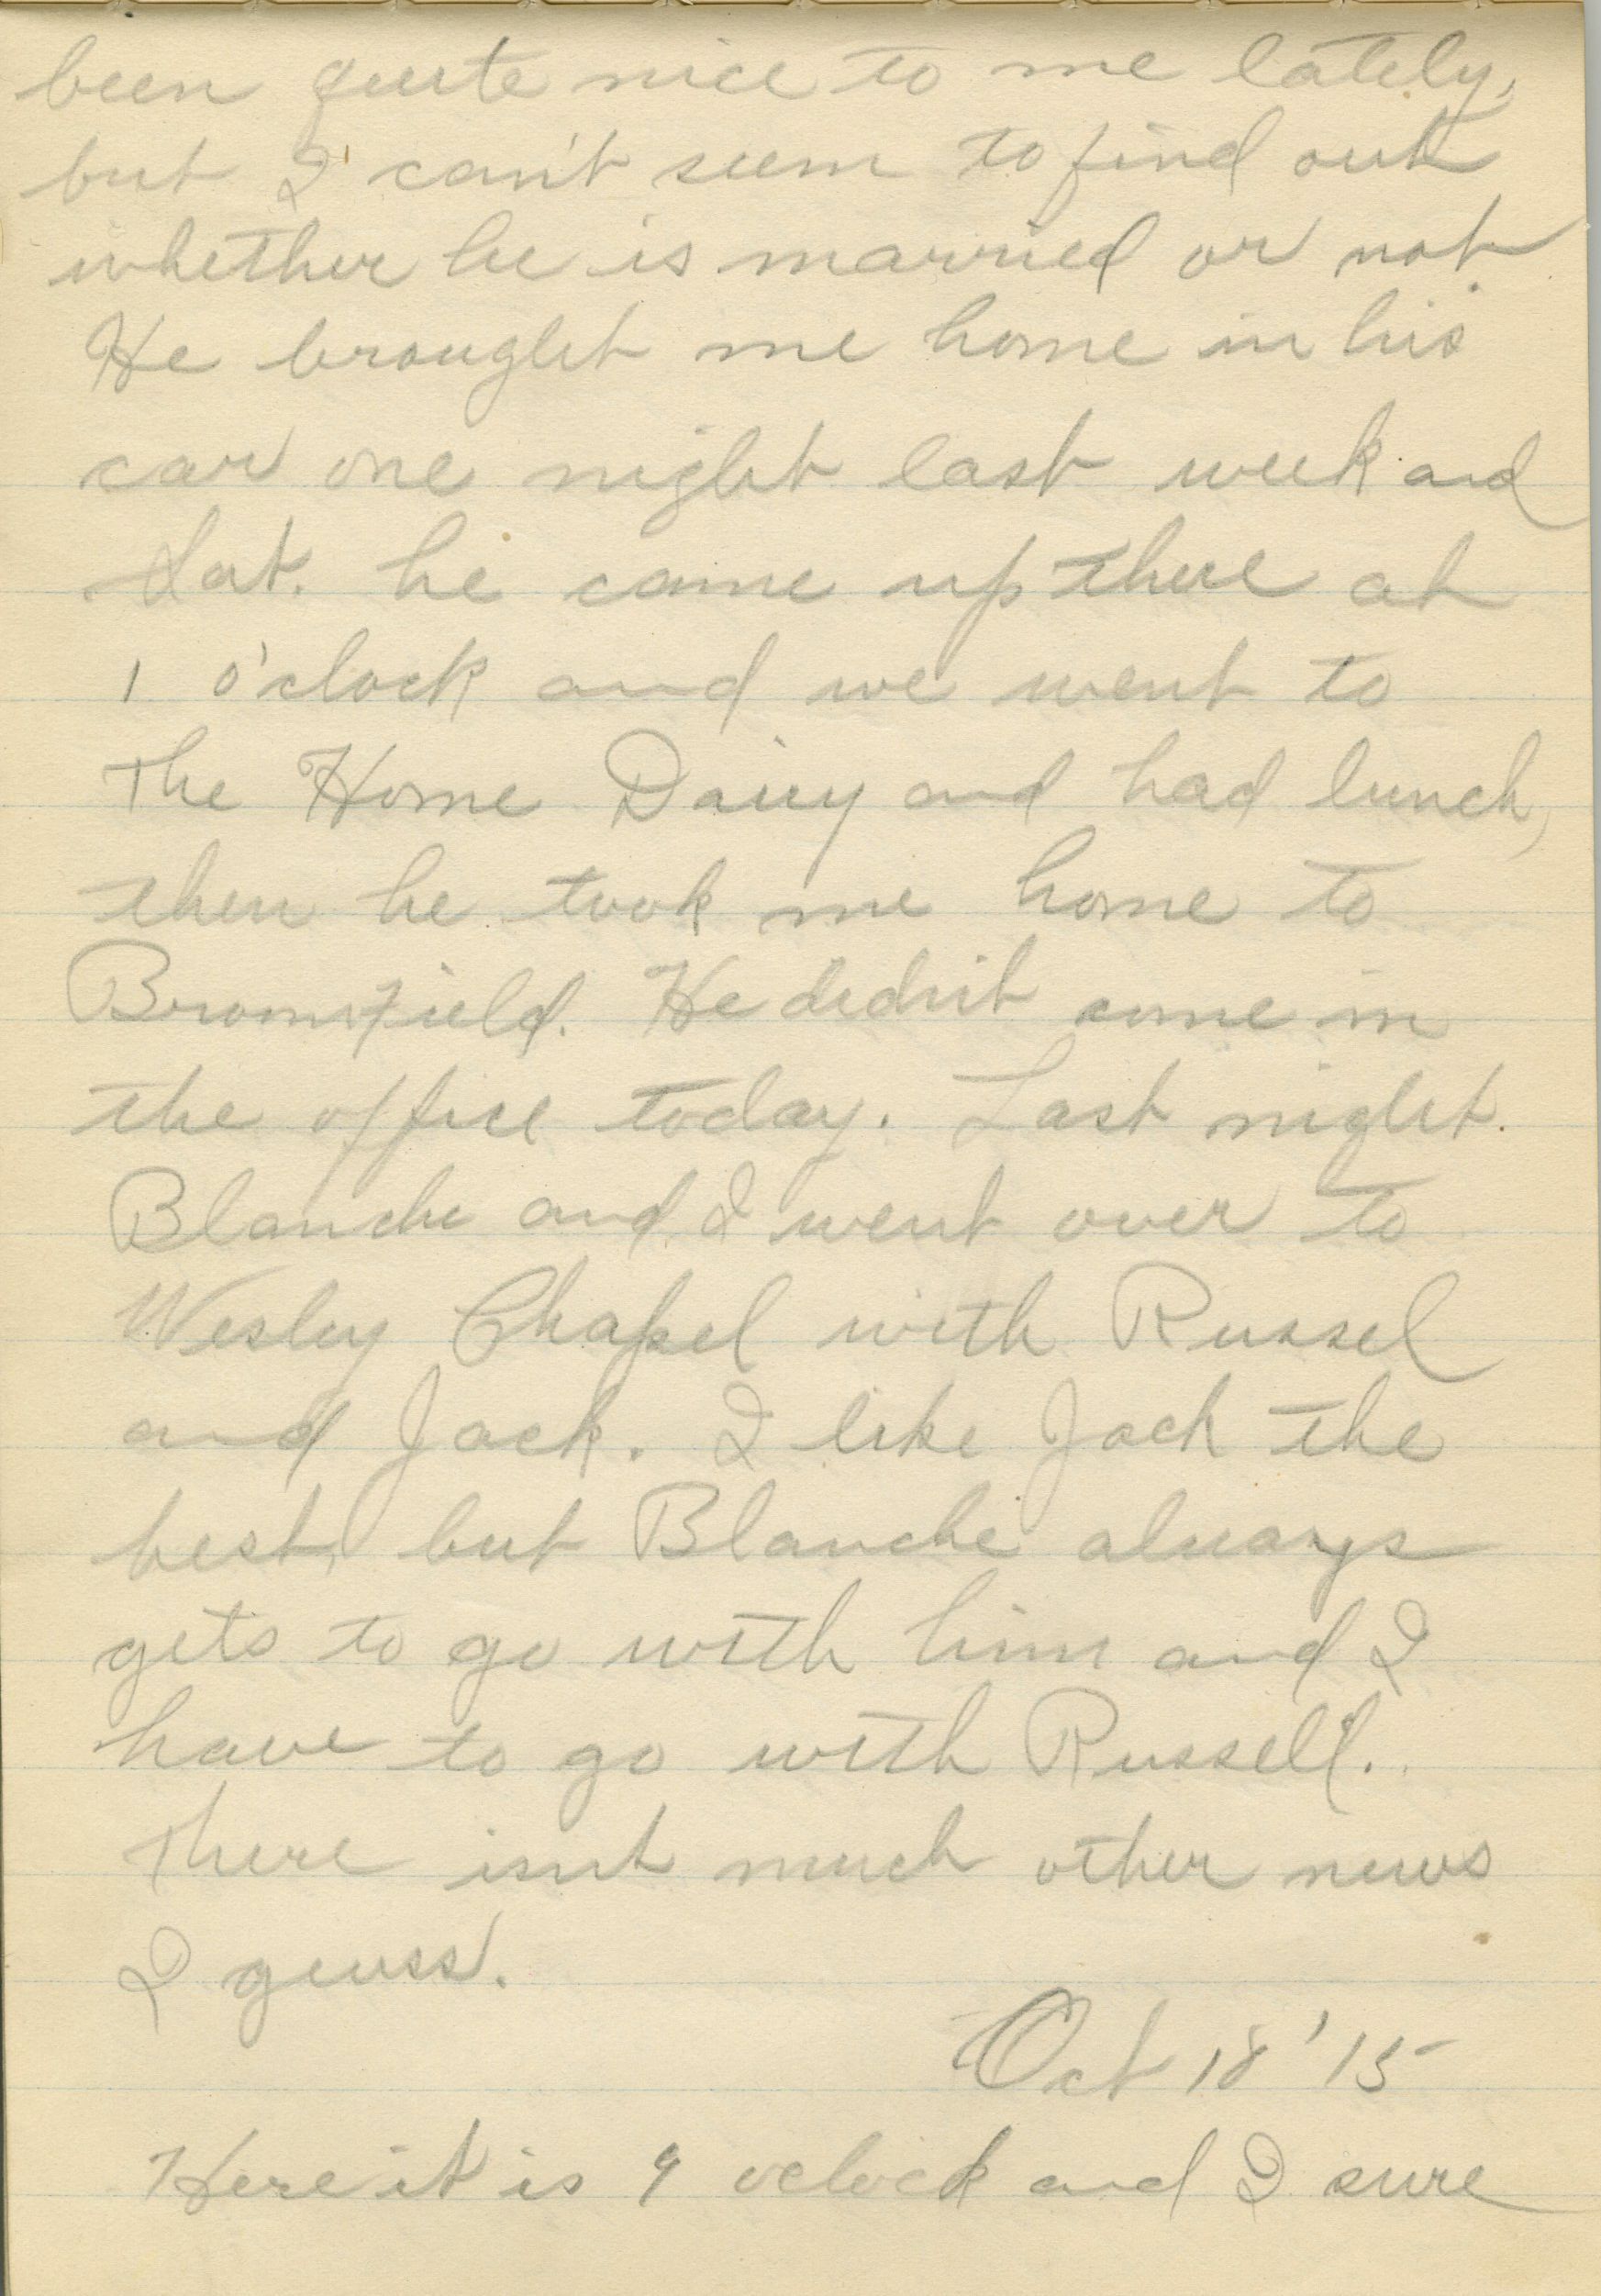 been quite nice to me lately,
but I can't seem to find out
whether he is married or not.
He brought me home in his
car one night last week and
Sat. he came up there at
1 o'clock and we went to
The Home Dairy and had lunch,
then he took me home to
Bromfield. He didn't come in
the office today. Last night
Blanche and I went over to
Wesley Chapel with Russel
and Jack. I like Jack the
best, but Blanche always
gets to go with him and I
have to go with Russell.
There isnt much other news
I guess.
Oct 18 '15
Here it is 9 oclock and I sure